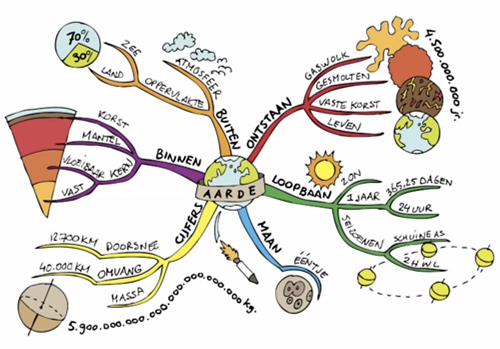 AARDE
ONTSTAAN
GASWOLK
GESMOLTEN
VASTE KORST
LEVEN
4.500.000.000 jr.
LOOPBAAN
ZON
1 JAAR
365.25 DAGEN
24 UUR
SEIZOENEN
SCHUINE AS
2 H W L
MAAN
ÉÉNTJE
CIJFERS
DOORSNEE
12700 KM
OMVANG
40.000 KM
MASSA
5.900.000.000.000.000.000.000 kg.
BINNEN
KORST
MANTEL
VLOEIBAAR KERN
VAST
BUITEN
ATMOSFEER
OPPERVLAKTE
ZEE
LAND
70%
30%